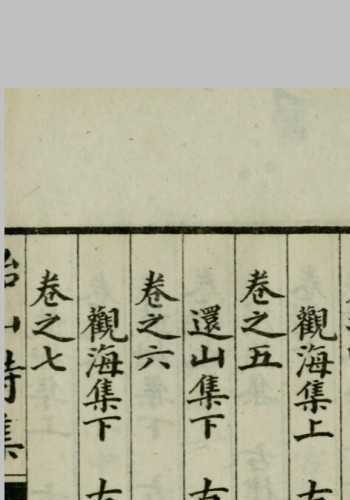 觀海集上 古
卷之五
還山集下 古
卷之六
觀海集下 古
卷之七
山詩集